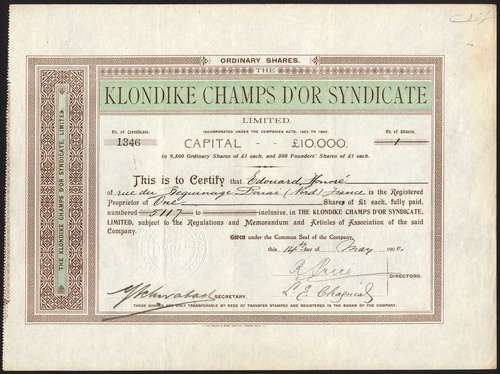 ORDINARY SHARES.
THE
KLONDIKE CHAMPS D'OR SYNDICATE
LIMITED.
INCORPORATED UNDER THE COMPANIES ACTS, 1862 TO 1893.
No. of Certificate. 1346
CAPITAL - - £10,000.
No. of Shares. 1
In 9,500 Ordinary Shares of £1 each, and 500 Founders' Shares of £1 each.
This is to Certify that Edouard Honoré
of rue du Béguinage Douai (Nord) France is the Registered
Proprietor of One Shares of £1 each, fully paid,
numbered 5117 to inclusive, in THE KLONDIKE CHAMPS D'OR SYNDICATE,
LIMITED, subject to the Regulations and Memorandum and Articles of Association of the said
Company.
Given under the Common Seal of the Company,
this 14th day of May 190
R Price
DIRECTORS.
SECRETARY.
THESE SHARES ARE ONLY TRANSFERABLE BY DEED OF TRANSFER STAMPED AND REGISTERED IN THE BOOKS OF THE COMPANY.
THE KLONDIKE CHAMPS D'OR SYNDICATE, LIMITED